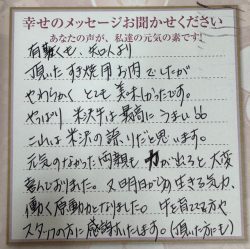 幸せのメッセージお聞かせください
あなたの声が、私達の元気の素です!
有難くも、知人より
頂いたすき焼用お肉でしたが
やわらかく とても 美味しかったです。
やっぱり 米沢牛は 最高に うまい
これは 米沢の 誇りだと思います。
元気のなかった両親も 力が出ると大変
喜んでおりました。又明日から 生きる気力、
働く原動力となりました。牛を育てる方や
スタッフの方に 感謝いたします。(頂いた方にも)